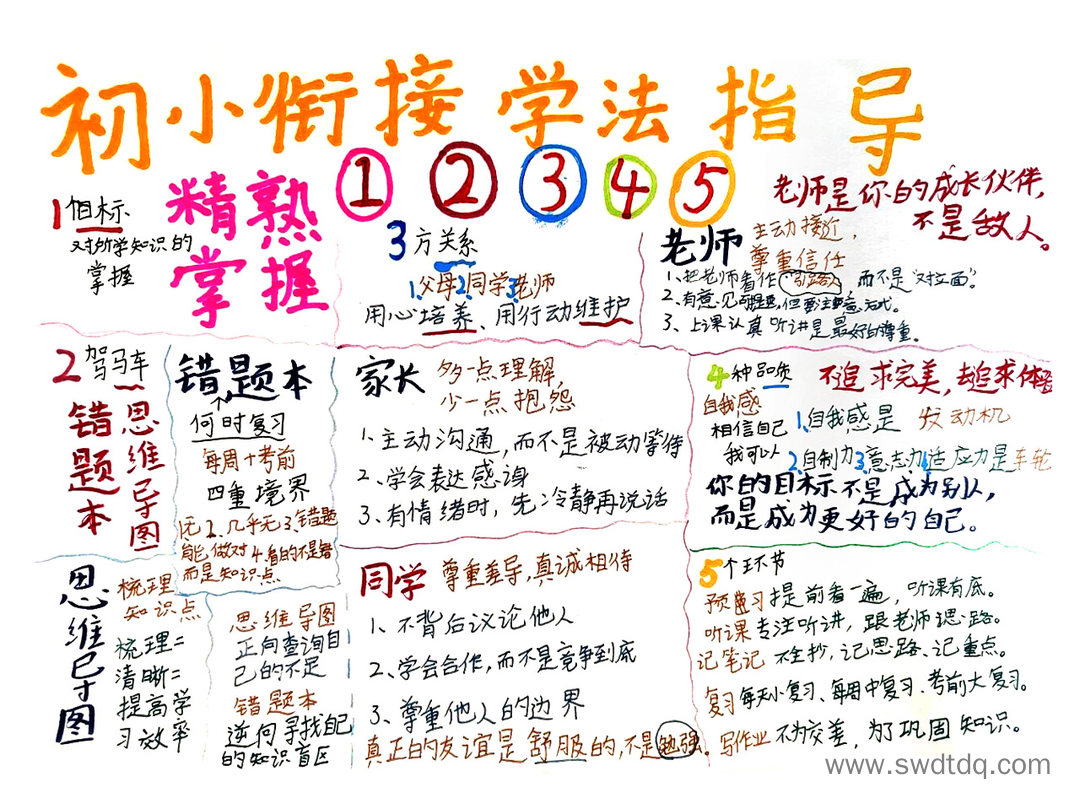 初小衔接学法指导
精熟掌握
① ② ③ ④ ⑤
1个目标
对所学知识的
掌握
3方关系
1、父母2、同学3、老师
用心培养、用行动维护
老师 主动接近，
尊重信任
1、把老师看作"引路人"而不是"对立面"。
2、有意见可提，但要注意方式。
3、上课认真听讲是最好的尊重。
老师是你的成长伙伴，
不是敌人。
2驾马车
错题本
思维导图
错题本
何时复习
每周+考前
四重境界
1、无 2、几乎无 3、错题
能做对 4、看的不是错
而是知识点
家长 多一点理解，
少一点抱怨
1、主动沟通，而不是被动等待
2、学会表达感谢
3、有情绪时，先冷静再说话
4种品质 不追求完美，去追求体验
自我感
相信自己
我可以
1、自我感是 发动机
2、自制力3、意志力4、适应力是车轮
你的目标不是成为别人，
而是成为更好的自己。
思维导图
梳理
知识点
梳理=
清晰=
提高学
习效率
思维导图
正向查询自
己的不足
错题本
逆向寻找自己
的知识盲区
同学 尊重差异，真诚相待
1、不背后议论他人
2、学会合作，而不是竞争到底
3、尊重他人的边界
真正的友谊是舒服的，不是勉强。
5个环节
预习 提前看一遍，听课有底。
听课 专注听讲，跟老师思路。
记笔记 不全抄，记思路、记重点。
复习 每天小复习、每周中复习、考前大复习。
写作业 不为交差，为了巩固知识。
www.swdtdq.com